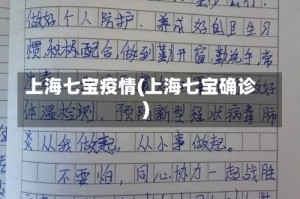 做好个人防护，养成好自卫生习
惯，积极配合，做到勤开窗勤洗手常
上海七宝疫情(上海七宝确诊
)
体温检测，预防新型冠状病毒肺
炎从我做起，从小事做起。
不要怕，同心协力一起战胜